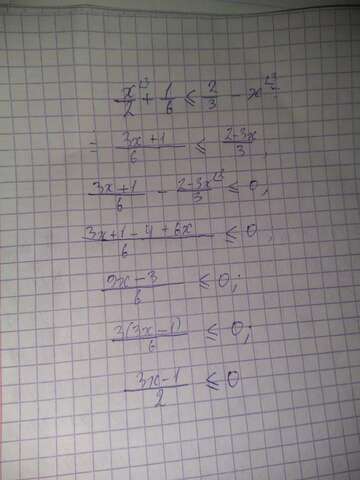 x/2^⌊3 + 1/6 ≤ 2/3 - x^⌊3
= (3x+1)/6 ≤ (2-3x)/3;
(3x+1)/6 - (2-3x^⌊2)/3 ≤ 0;
(3x+1-4+6x)/6 ≤ 0;
(9x-3)/6 ≤ 0;
3(3x-1)/6 ≤ 0;
(3x-1)/2 ≤ 0